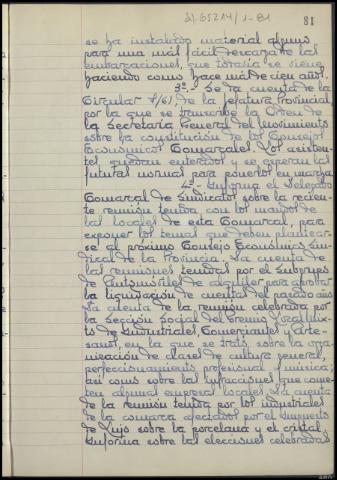 81
se ha instalado material alguno
para una más fácil descarga de las
embarcaciones, que todavía se viene
haciendo como hace más de cien años.
3º.- Se da cuenta de la
Circular 7/61, de la Jefatura Provincial,
por la que se transcribe la Orden de
la Secretaría General del Movimiento
sobre la constitución de los Consejos
Económicos Comarcales. Los asisten-
tes, quedan enterados y se esperan las
futuras normas para ponerlos en marcha
4º.- Informa el Delegado
Comarcal de Sindicatos sobre la recien-
te reunión tenida con los mandos de
las locales de esta Comarcal, para
exponer los temas que deben plantear-
se al próximo Consejo Económico Sin-
dical de la Provincia. Da cuenta de
las reuniones tenidas por el Subgrupo
de Automóviles de alquiler para aprobar
la liquidación de cuentas del pasado año
Da cuenta de la reunión celebrada por
la Sección Social del Gremio Local Mix-
to de Industriales, Comerciantes y Arte-
sanos, en la que se trató sobre la orga-
nización de clases de cultura general,
perfeccionamiento profesional y música;
así como sobre las infracciones que come-
ten algunas empresas locales. Da cuenta
de la reunión tenida por los industriales
de la comarca afectados por el impuesto
de Lujo sobre la porcelana y el cristal.
Informa sobre las elecciones celebradas